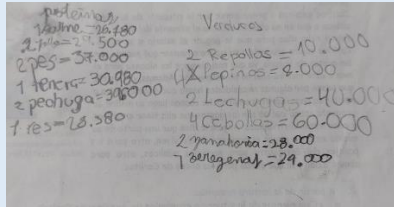 proteinas
1 carne=28.980
2 pollo=27.500
2 pes=37.000
1 tenera=30.980
2 pechuga=396000
1 res=28.980
Verduras
2 Repollos=10.000
4 Pepinos=8.000
2 Lechugas=40.000
4 cebollas=60.000
2 zanahoria=28.000
7 beregenas=29.000